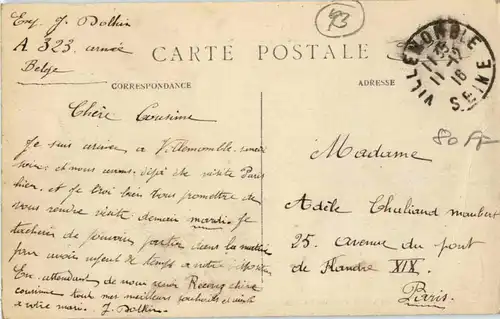 Exp J. Dolkin
A 323. armée
Belge
93
CARTE POSTALE
VILLEMOMBLE
11-12
16
SEINE
CORRESPONDANCE
ADRESSE
80 FF
Chère Cousine
Je suis arrivé a Villemomble samedi
soir et nous avons déjà été visité Paris
hier. et je croi bien vous promettre de
vous rendre visite demain mardi. Je
tacherai de pouvoir partir dans la matinée
pour avoir
de temps a votre
En attendant de nous revoir Recevez chère
cousine tout nos meilleurs souhaits et ainsi
a votre mari. J. Dolkin
Madame
Adèle Chuliand maubert
25. avenue du pont
de Flandre XIX.
Paris.